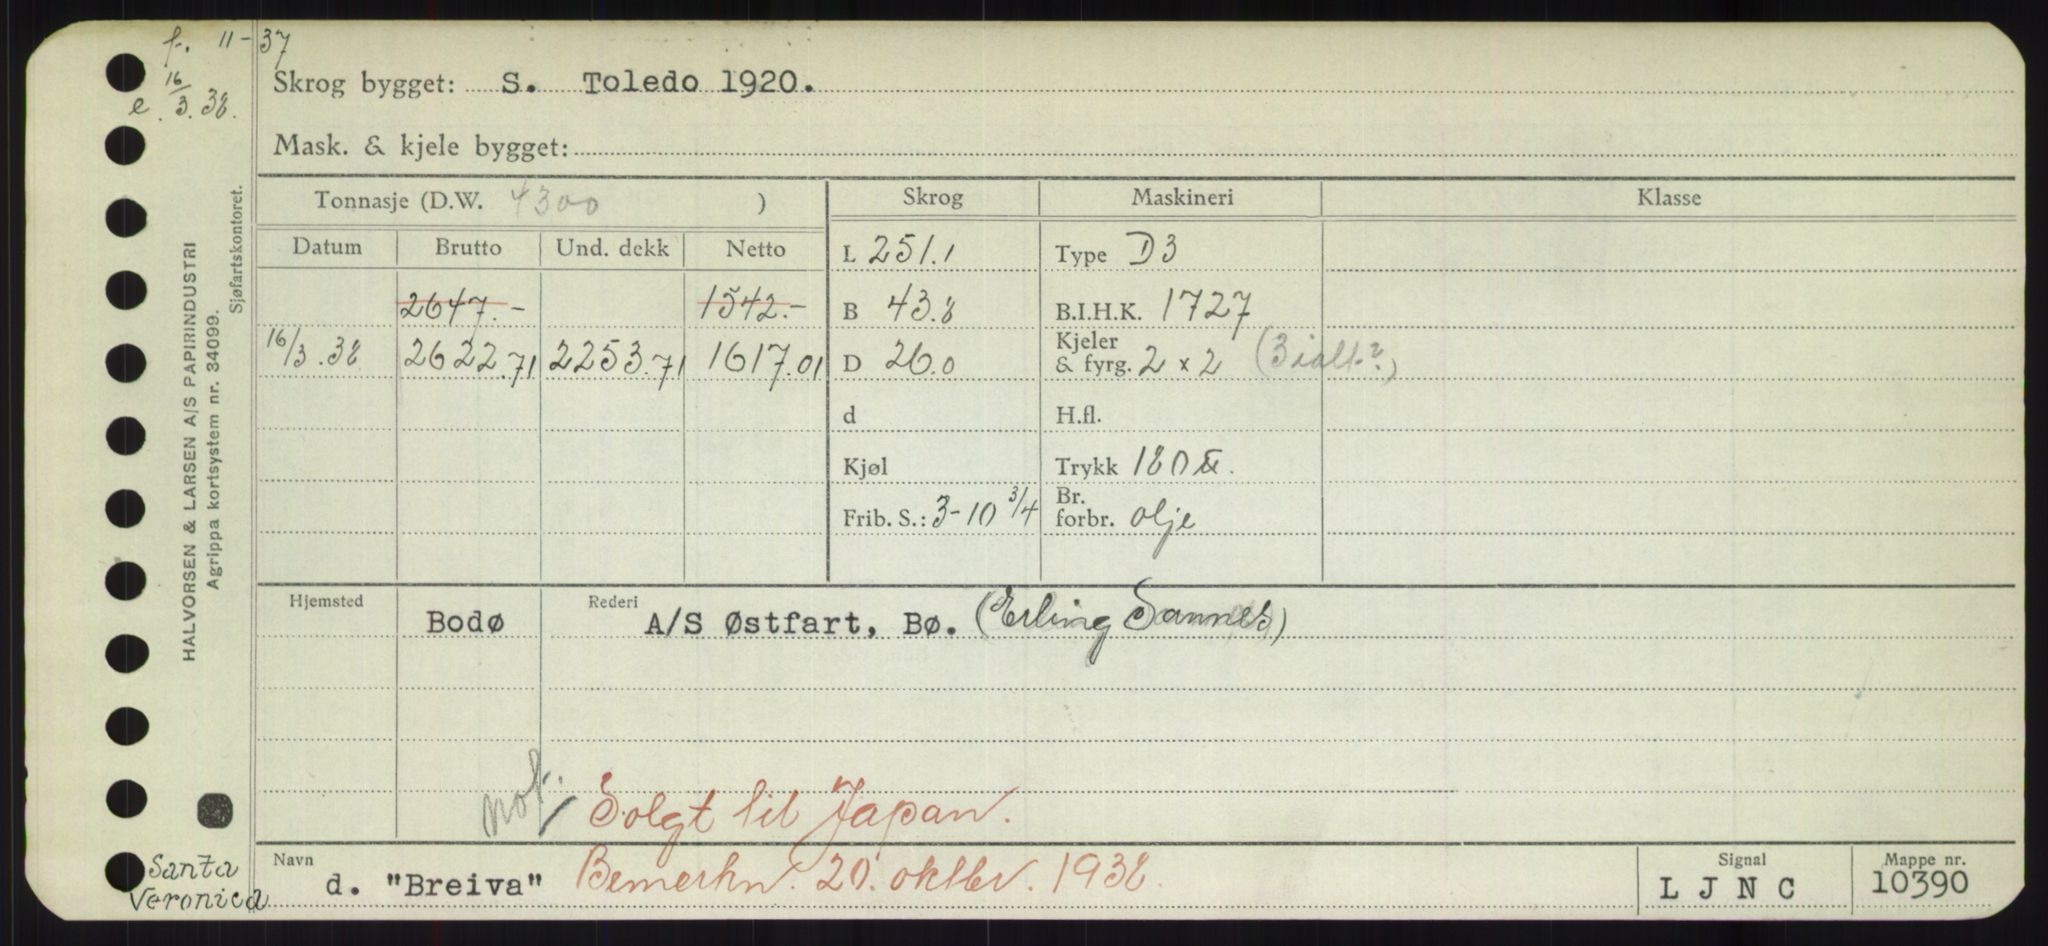 f. 11-37
e. 16/3.38.
Skrog bygget: S. Toledo 1920.
Mask. & kjele bygget:
HALVORSEN & LARSEN A/S PAPIRINDUSTRI
Agrippa kortsystem nr. 34099.
Sjøfartskontoret.
Tonnasje (D.W. 4300 ) Skrog Maskineri Klasse
Datum Brutto Und. dekk Netto L 251.1 Type D3
2647.- 1542.- B 43.8 B.I.H.K. 1727
16/3.38 2622.71 2253.71 1617.01 D 26.0 Kjeler & fyrg. 2 x 2 (3 i alt?)
d H.fl.
Kjøl Trykk 180 lb.
Frib. S.: 3-10 3/4 Br. forbr. olje
Hjemsted Bodø Rederi A/S Østfart, Bø. (Erling Sannes)
not. Solgt til Japan.
Santa Veronica
Navn d. "Breiva" Bemerkn. 20. oktbr. 1938.
Signal L J N C
Mappe nr. 10390